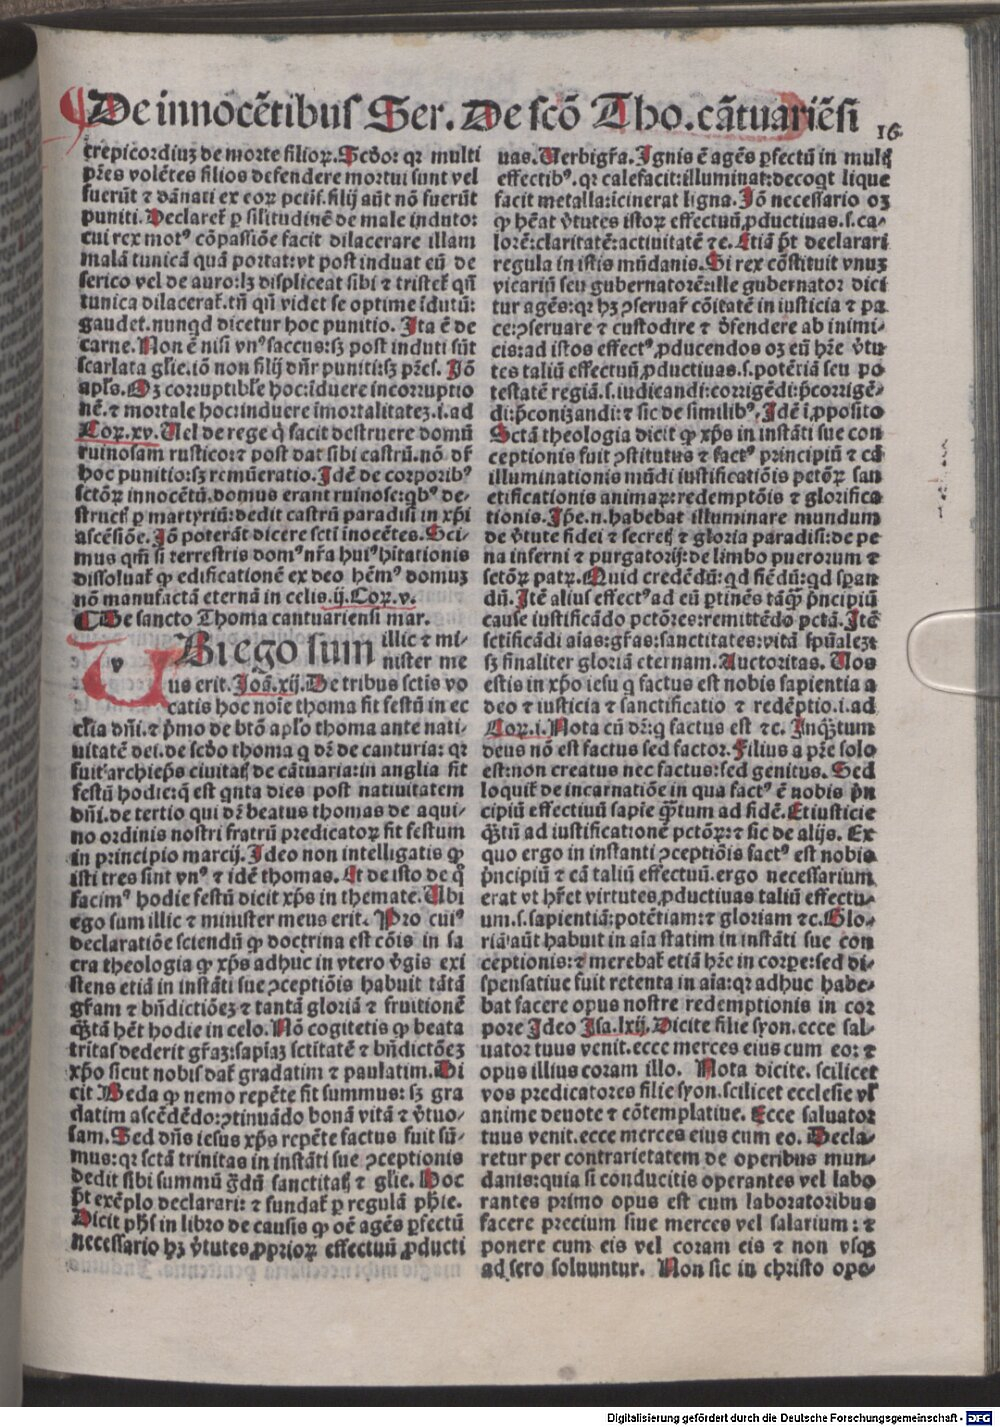 De innocẽtibus Ser. De scõ Tho. cãtuariẽsi
16
trepicordiuʒ de morte filioꝝ. Scďo: qꝛ multi
pr̃es volẽtes filios defendere mortui sunt vel
fuerũt ⁊ dãnati ex eoꝝ petiš. filij aũt nõ fuerũt
puniti. Declaret̃ ꝑ silitudinẽ de male induto:
cui rex motꝰ cõpassiõe facit dilacerare illam
malã tunicã quã portat: vt post induat eũ de
serico vel de auro: lʒ displiceat sibi ⁊ tristet̃ qñ
tunica dilacerat̃. tñ qñ videt se optime ĩdutũ:
gaudet. nunqd dicetur hoc punitio. Ita ẽ de
carne. Non ẽ nisi vnꝰ saccus: sʒ post induti sũt
scarlata glĩe. iõ non filij dñr puniti: sʒ pr̃es. Iõ
apl̃s. Oʒ corruptibl̃e hoc: ĩduere incorruptio
nẽ. ⁊ mortale hoc: induere ĩmortalitateʒ. i. ad
Coꝝ. xv. Uel de rege q̃ facit destruere domũ
ruinosam rustico: ⁊ post dat sibi castrũ. nõ dr̃
hoc punitio: sʒ remũeratio. Idẽ de corporibꝰ
sctõꝝ innocẽtũ. domus erant ruinose: qbꝰ de-
struct̃ ꝑ martyriũ: dedit castrũ paradisi in xp̃i
ascẽsiõe. Iõ poterãt dicere scti inocẽtes. Sci-
mus qm̃ si terrestris domꝰ nr̃a huiꝰ hitationis
dissoluat̃ ꝙ edificationẽ ex deo hẽmꝰ domuʒ
nõ manufactã eternã in celis. ij. Coꝝ. v.
De sancto Thoma cantuariensi mar.
UBi ego sum illic ⁊ mi-
v
nister me
us erit. Ioã. xij. De tribus sctis vo
catis hoc noĩe thoma fit festũ in ec
cl̃ia dñi. ⁊ p̃mo de btõ apl̃o thoma ante nati-
uitatẽ dei. de scďo thoma q dr̃ de canturia: qꝛ
fuit archiep̃s ciuitať de cãtuaria: in anglia fit
festũ hodie: q̃ est qnta dies post natiuitatem
dñi. de tertio qui dr̃ beatus thomas de aqui-
no ordinis nostri fratrũ predicatoꝝ fit festum
in principio marcij. Ideo non intelligatis ꝙ
isti tres sint vnꝰ ⁊ idẽ thomas. Et de isto de q̃
facimꝰ hodie festũ dicit xp̃s in themate. Ubi
ego sum illic ⁊ minister meus erit. Pro cuiꝰ
declaratiõe sciendũ ꝙ doctrina est cõis in sa
cra theologia ꝙ xp̃s adhuc in vtero ṽgis exi
stens etiã in instãti sue ꝯceptiõis habuit tãtã
gr̃am ⁊ bñdictiõeʒ ⁊ tantã gloriã ⁊ fruitionẽ
qᷓtã hẽt hodie in celo. Nõ cogitetis ꝙ beata
tritas dederit gr̃aʒ: sapĩaʒ sctitatẽ ⁊ bñdictõeʒ
xp̃o sicut nobis dat̃ gradatim ⁊ paulatim. Di
cit Beda ꝙ nemo repẽte fit summus: sʒ gra
datim ascẽdẽdo: ꝯtinuãdo bonã vitã ⁊ ṽtuo-
sam. Sed dñs iesus xp̃s repẽte factus fuit sũ-
mus: qꝛ sctã trinitas in instãti sue ꝯceptionis
dedit sibi summũ g̃dũ sanctitať ⁊ glĩe. Hoc
p̃t exẽplo declarari: ⁊ fundat̃ ꝑ regulã ph̃ie.
Dicit ph̃s in libro de causis ꝙ oẽ agẽs ꝑfectũ
necessario hʒ ṽtutes ꝓprioꝝ effectuũ ꝓducti
uas. Uerbigr̃a. Ignis ẽ agẽs ꝑfectũ in mulť
effectibꝰ. qꝛ calefacit: illuminat: decoqt lique
facit metalla: icinerat ligna. Iõ necessario oʒ
ꝙ hẽat ṽtutes istoꝝ effectuũ ꝓductiuas. s. ca-
lorẽ: claritatẽ: actiuitatẽ ⁊c. Etiã p̃t declarari
regula in istis mũdanis. Si rex cõstituit vnuʒ
vicariũ seu gubernatorẽ: ille gubernator dici
tur agẽs: qꝛ hʒ ꝯseruar̃ cõitatẽ in iusticia ⁊ pa
ce: ꝯseruare ⁊ custodire ⁊ ďfendere ab inimi-
cis: ad istos effectꝰ ꝓducendos oʒ eũ hr̃e ṽtu
tes taliũ effectuũ ꝓductiuas. s. potẽriã seu po
testatẽ regiã. s. iudicandi: corrigẽdi: p̃corrigẽ-
di: p̃conizandi: ⁊ sic de similibꝰ. Idẽ ĩ ꝓposito
Sctã theologia dicit ꝙ xp̃s in instãti sue con
ceptionis fuit ꝯstitutus ⁊ factꝰ principiũ ⁊ cã
illuminationis mũdi iustificatiõis pctõꝝ san
ctificationis animaꝝ: redemptõis ⁊ glorifica
tionis. Ip̃e. n. habebat illuminare mundum
de ṽtute fidei ⁊ secreť ⁊ gloria paradisi: de pe
na inferni ⁊ purgatorij: de limbo puerorum ⁊
sctõꝝ patꝝ. Quid credẽdũ: qd fiẽdũ: qd speran
dũ. Itẽ alius effectꝰ ad eũ ꝑtinẽs tãꝙ̃ p̃ncipiũ
cause iustificãdo pctõres: remittẽdo pctã. Itẽ
sctificãdi aĩas: gr̃as: sanctitates: vitã spũalez:
sʒ finaliter gloriã eternam. Auctoritas. Uos
estis in xp̃o iesu q factus est nobis sapientia a
deo ⁊ iusticia ⁊ sanctificatio ⁊ redẽptio. i. ad
Coꝝ. i. Nota cũ dr̃: q factus est ⁊c. Inqᷓtum
deus nõ est factus sed factor. Filius a pr̃e solo
est: non creatus nec factus: sed genitus. Sed
loquit̃ de incarnatiõe in qua factꝰ ẽ nobis p̃n
cipiũ effectiuũ sapie qᷓtum ad fidẽ. Et iusticie
qᷓtũ ad iustificationẽ pctõꝝ: ⁊ sic de alijs. Ex
quo ergo in instanti ꝯceptiõis factꝰ est nobis
p̃ncipiũ ⁊ cã taliũ effectuũ. ergo necessarium
erat vt hr̃et virtutes ꝓductiuas taliũ effectu-
um. s. sapientiã: potẽtiam: ⁊ gloriam ⁊c. Glo-
riã aũt habuit in aĩa statim in instãti sue con
ceptionis: ⁊ merebat̃ etiã hr̃e in corpe: sed di-
spensatiue fuit retenta in aĩa: qꝛ adhuc habe-
bat facere opus nostre redemptionis in cor
pore Ideo Isa. lxij. Dicite filie syon. ecce sal-
uator tuus venit. ecce merces eius cum eo: ⁊
opus illius coram illo. Nota dicite. scilicet
vos predicatores filie syon. scilicet ecclesie vl̃
anime deuote ⁊ cõtemplatiue. Ecce saluator
tuus venit. ecce merces eius cum eo. Decla-
retur per contrarietatem de operibus mun-
danis: quia si conducitis operantes vel labo
rantes primo opus est cum laboratoribus
facere precium siue merces vel salarium: ⁊
ponere cum eis vel coram eis ⁊ non vsqʒ
ad sero soluuntur. Non sic in christo ope-
Digitalisierung gefördert durch die Deutsche Forschungsgemeinschaft - DFG